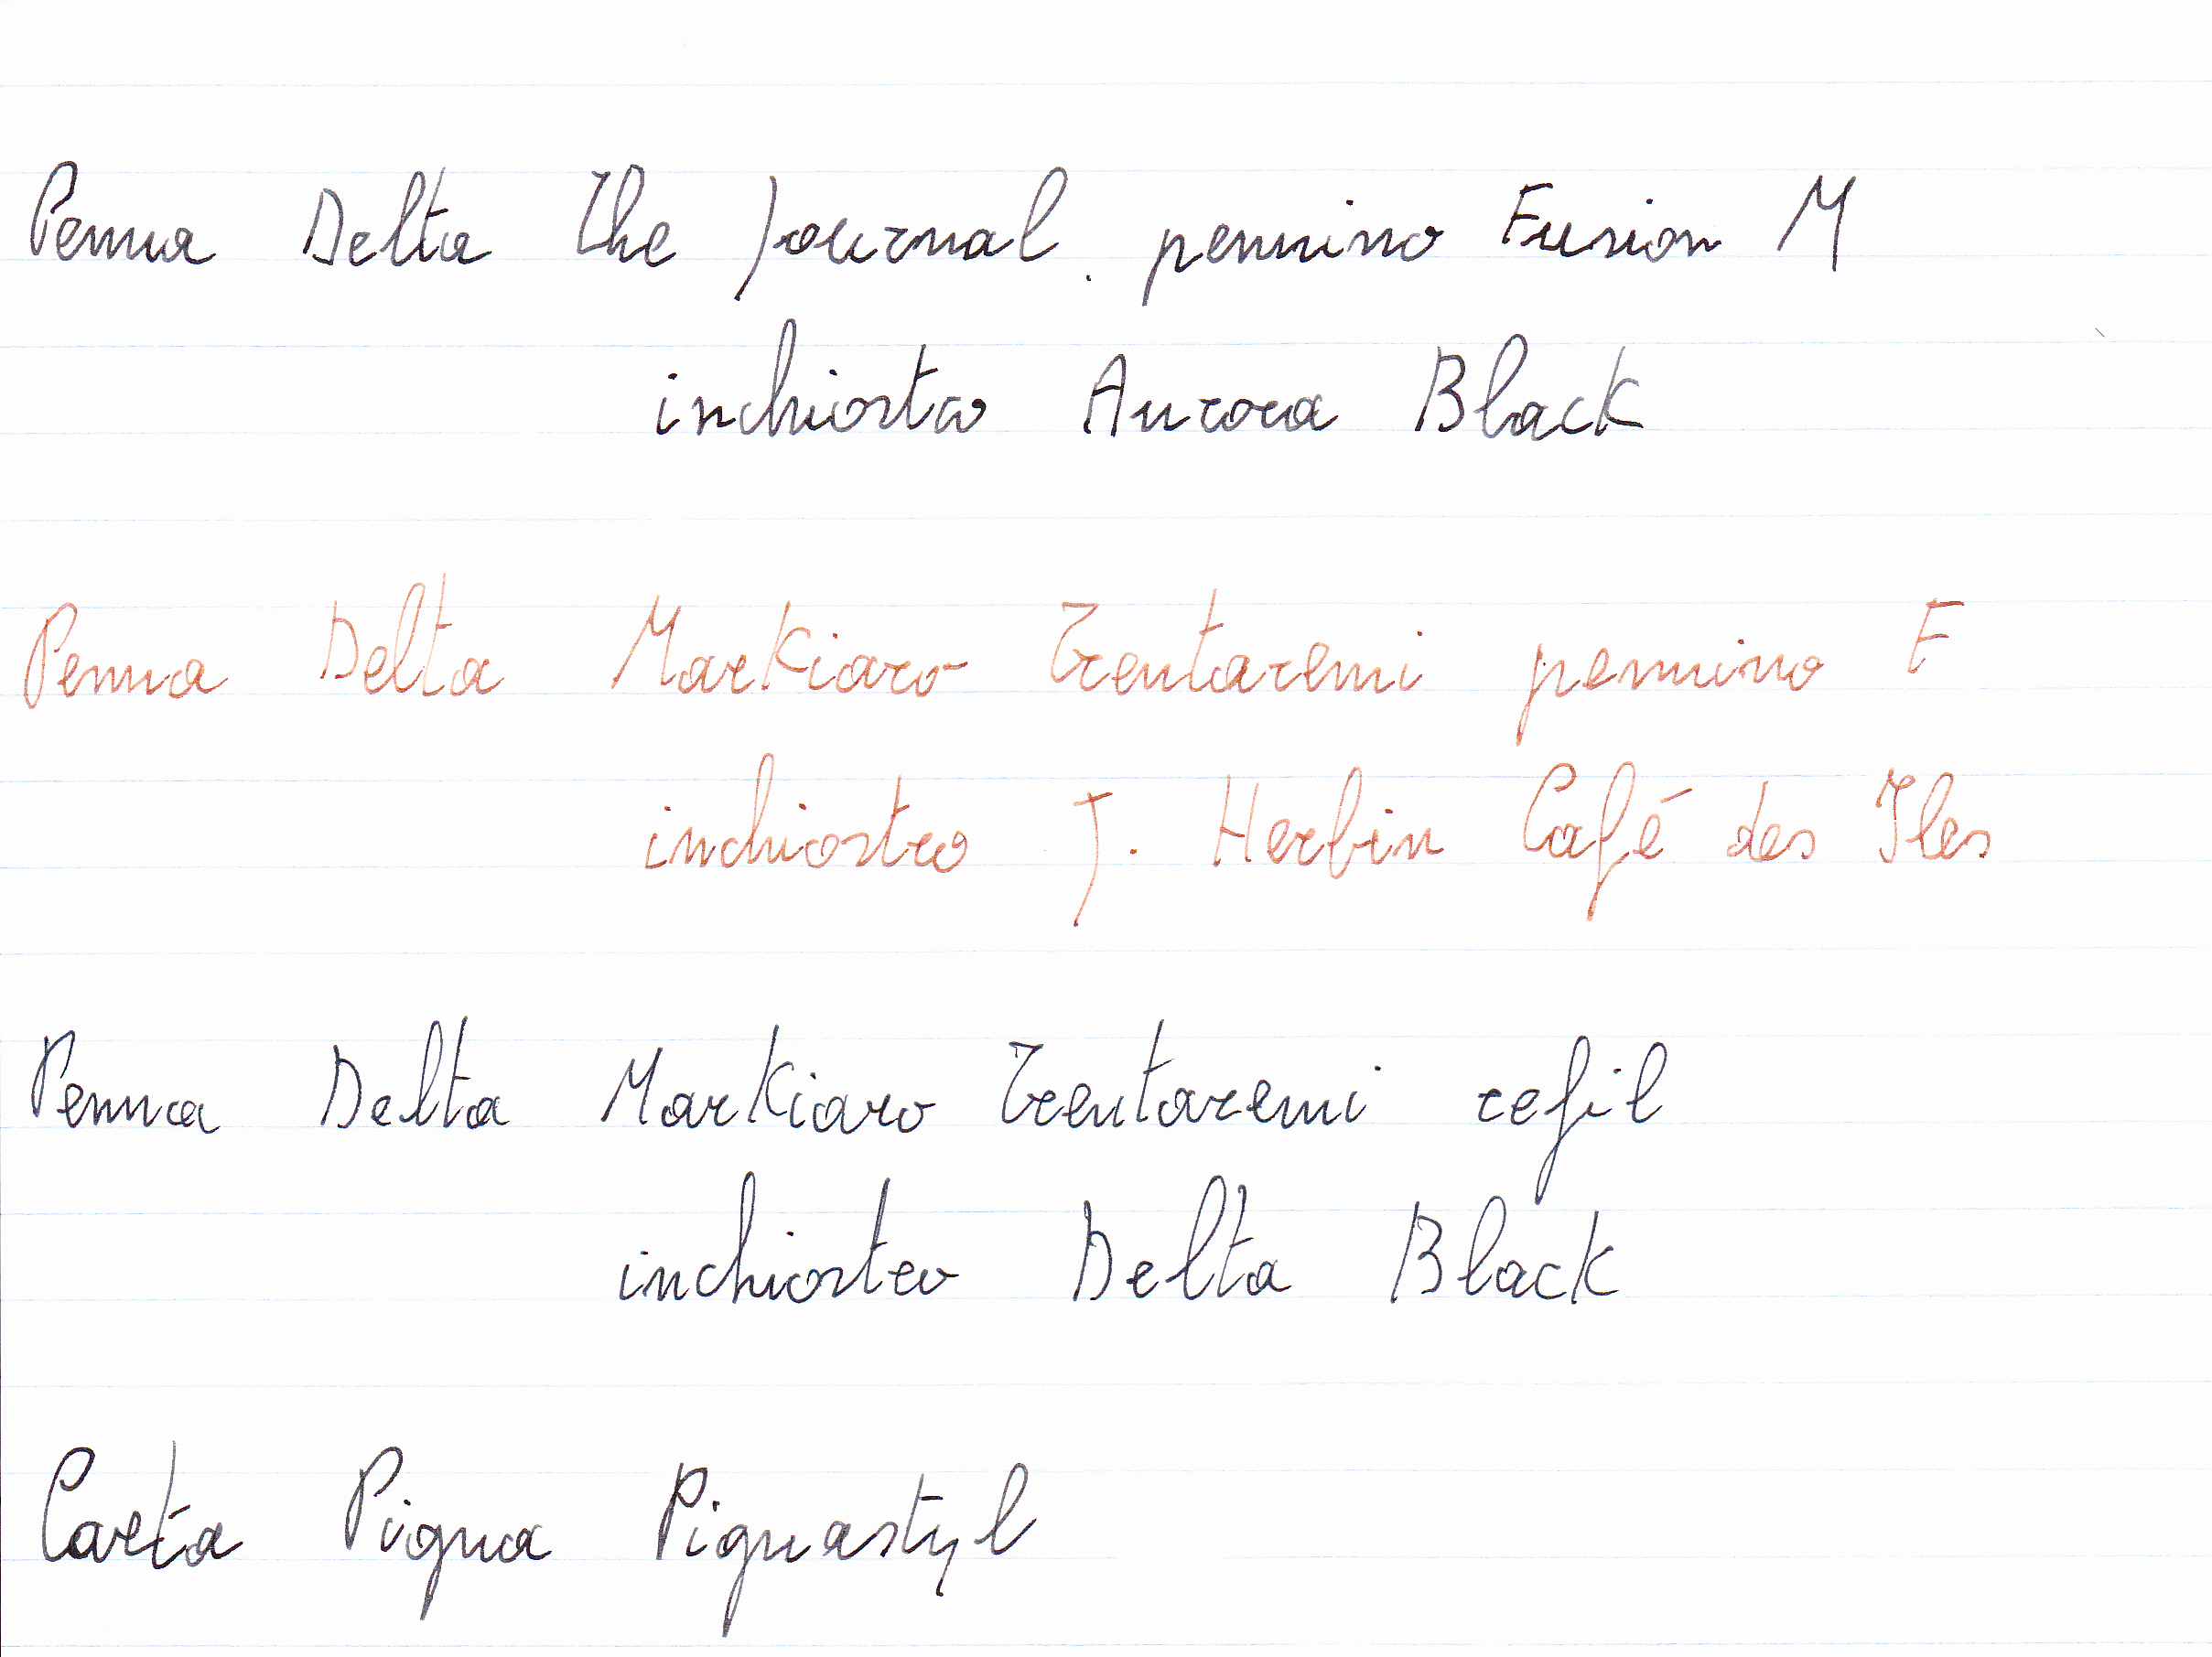 Penna Delta The Journal. pennino Fusion M
inchiostro Aurora Black
Penna Delta Markiaro Trentaremi pennino F
inchiostro J. Herbin Café des Iles
Penna Delta Markiaro Trentaremi refil
inchiostro Delta Black
Carta Pigna Pignastyl